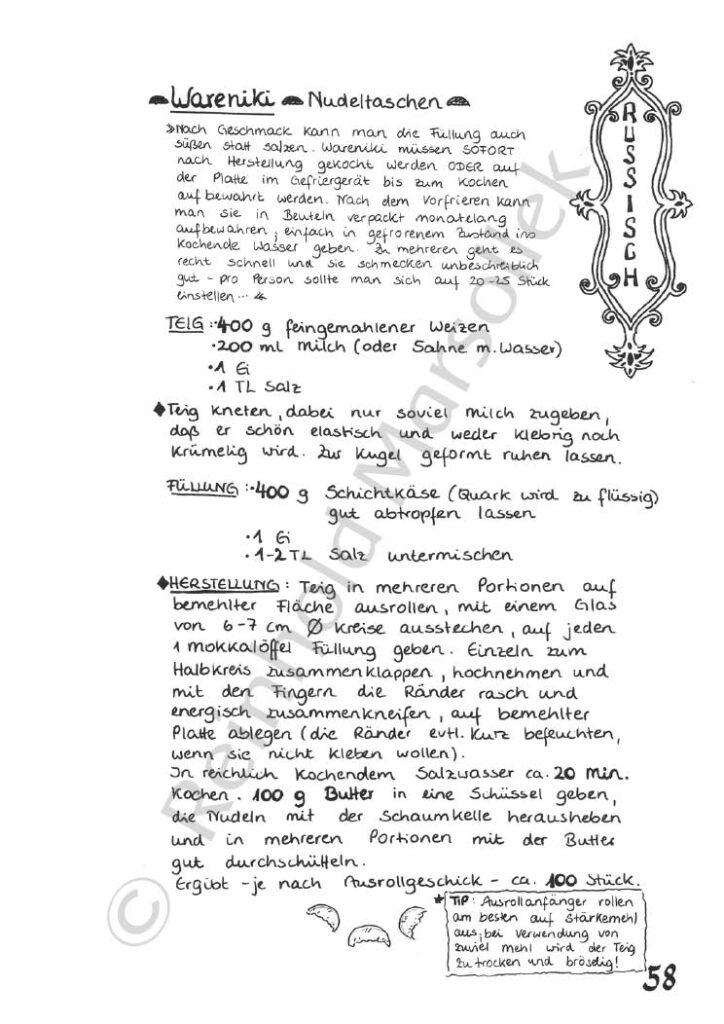 Wareniki Nudeltaschen
»Nach Geschmack kann man die Füllung auch
süßen statt salzen. Wareniki müssen SOFORT
nach Herstellung gekocht werden ODER auf
der Platte im Gefriergerät bis zum Kochen
aufbewahrt werden. Nach dem Vorfrieren kann
man sie in Beuteln verpackt monatelang
aufbewahren, einfach in gefrorenem Zustand ins
kochende Wasser geben. Zu mehreren geht es
recht schnell und sie schmecken unbeschreiblich
gut - pro Person sollte man sich auf 20-25 Stück
einstellen... «
RUSSISCH
TEIG: •400 g feingemahlener Weizen
•200 ml Milch (oder Sahne m. Wasser)
•1 Ei
•1 TL Salz
◆Teig kneten, dabei nur soviel Milch zugeben,
daß er schön elastisch und weder klebrig noch
krümelig wird. Zur Kugel geformt ruhen lassen.
FÜLLUNG: •400 g Schichtkäse (Quark wird zu flüssig)
gut abtropfen lassen
•1 Ei
•1-2 TL Salz untermischen
◆HERSTELLUNG: Teig in mehreren Portionen auf
bemehlter Fläche ausrollen, mit einem Glas
von 6-7 cm Ø Kreise ausstechen, auf jeden
1 Mokkalöffel Füllung geben. Einzeln zum
Halbkreis zusammenklappen, hochnehmen und
mit den Fingern die Ränder rasch und
energisch zusammenkneifen, auf bemehlter
Platte ablegen (die Ränder evtl. kurz befeuchten,
wenn sie nicht kleben wollen).
In reichlich kochendem Salzwasser ca. 20 min.
kochen. 100 g Butter in eine Schüssel geben,
die Nudeln mit der Schaumkelle herausheben
und in mehreren Portionen mit der Butter
gut durchschütteln.
Ergibt - je nach Ausrollgeschick - ca. 100 Stück.
* TIP: Ausrollanfänger rollen
am besten auf Stärkemehl
aus, bei Verwendung von
zuviel Mehl wird der Teig
zu trocken und bröselig!
58
© Reinhold Marsollek